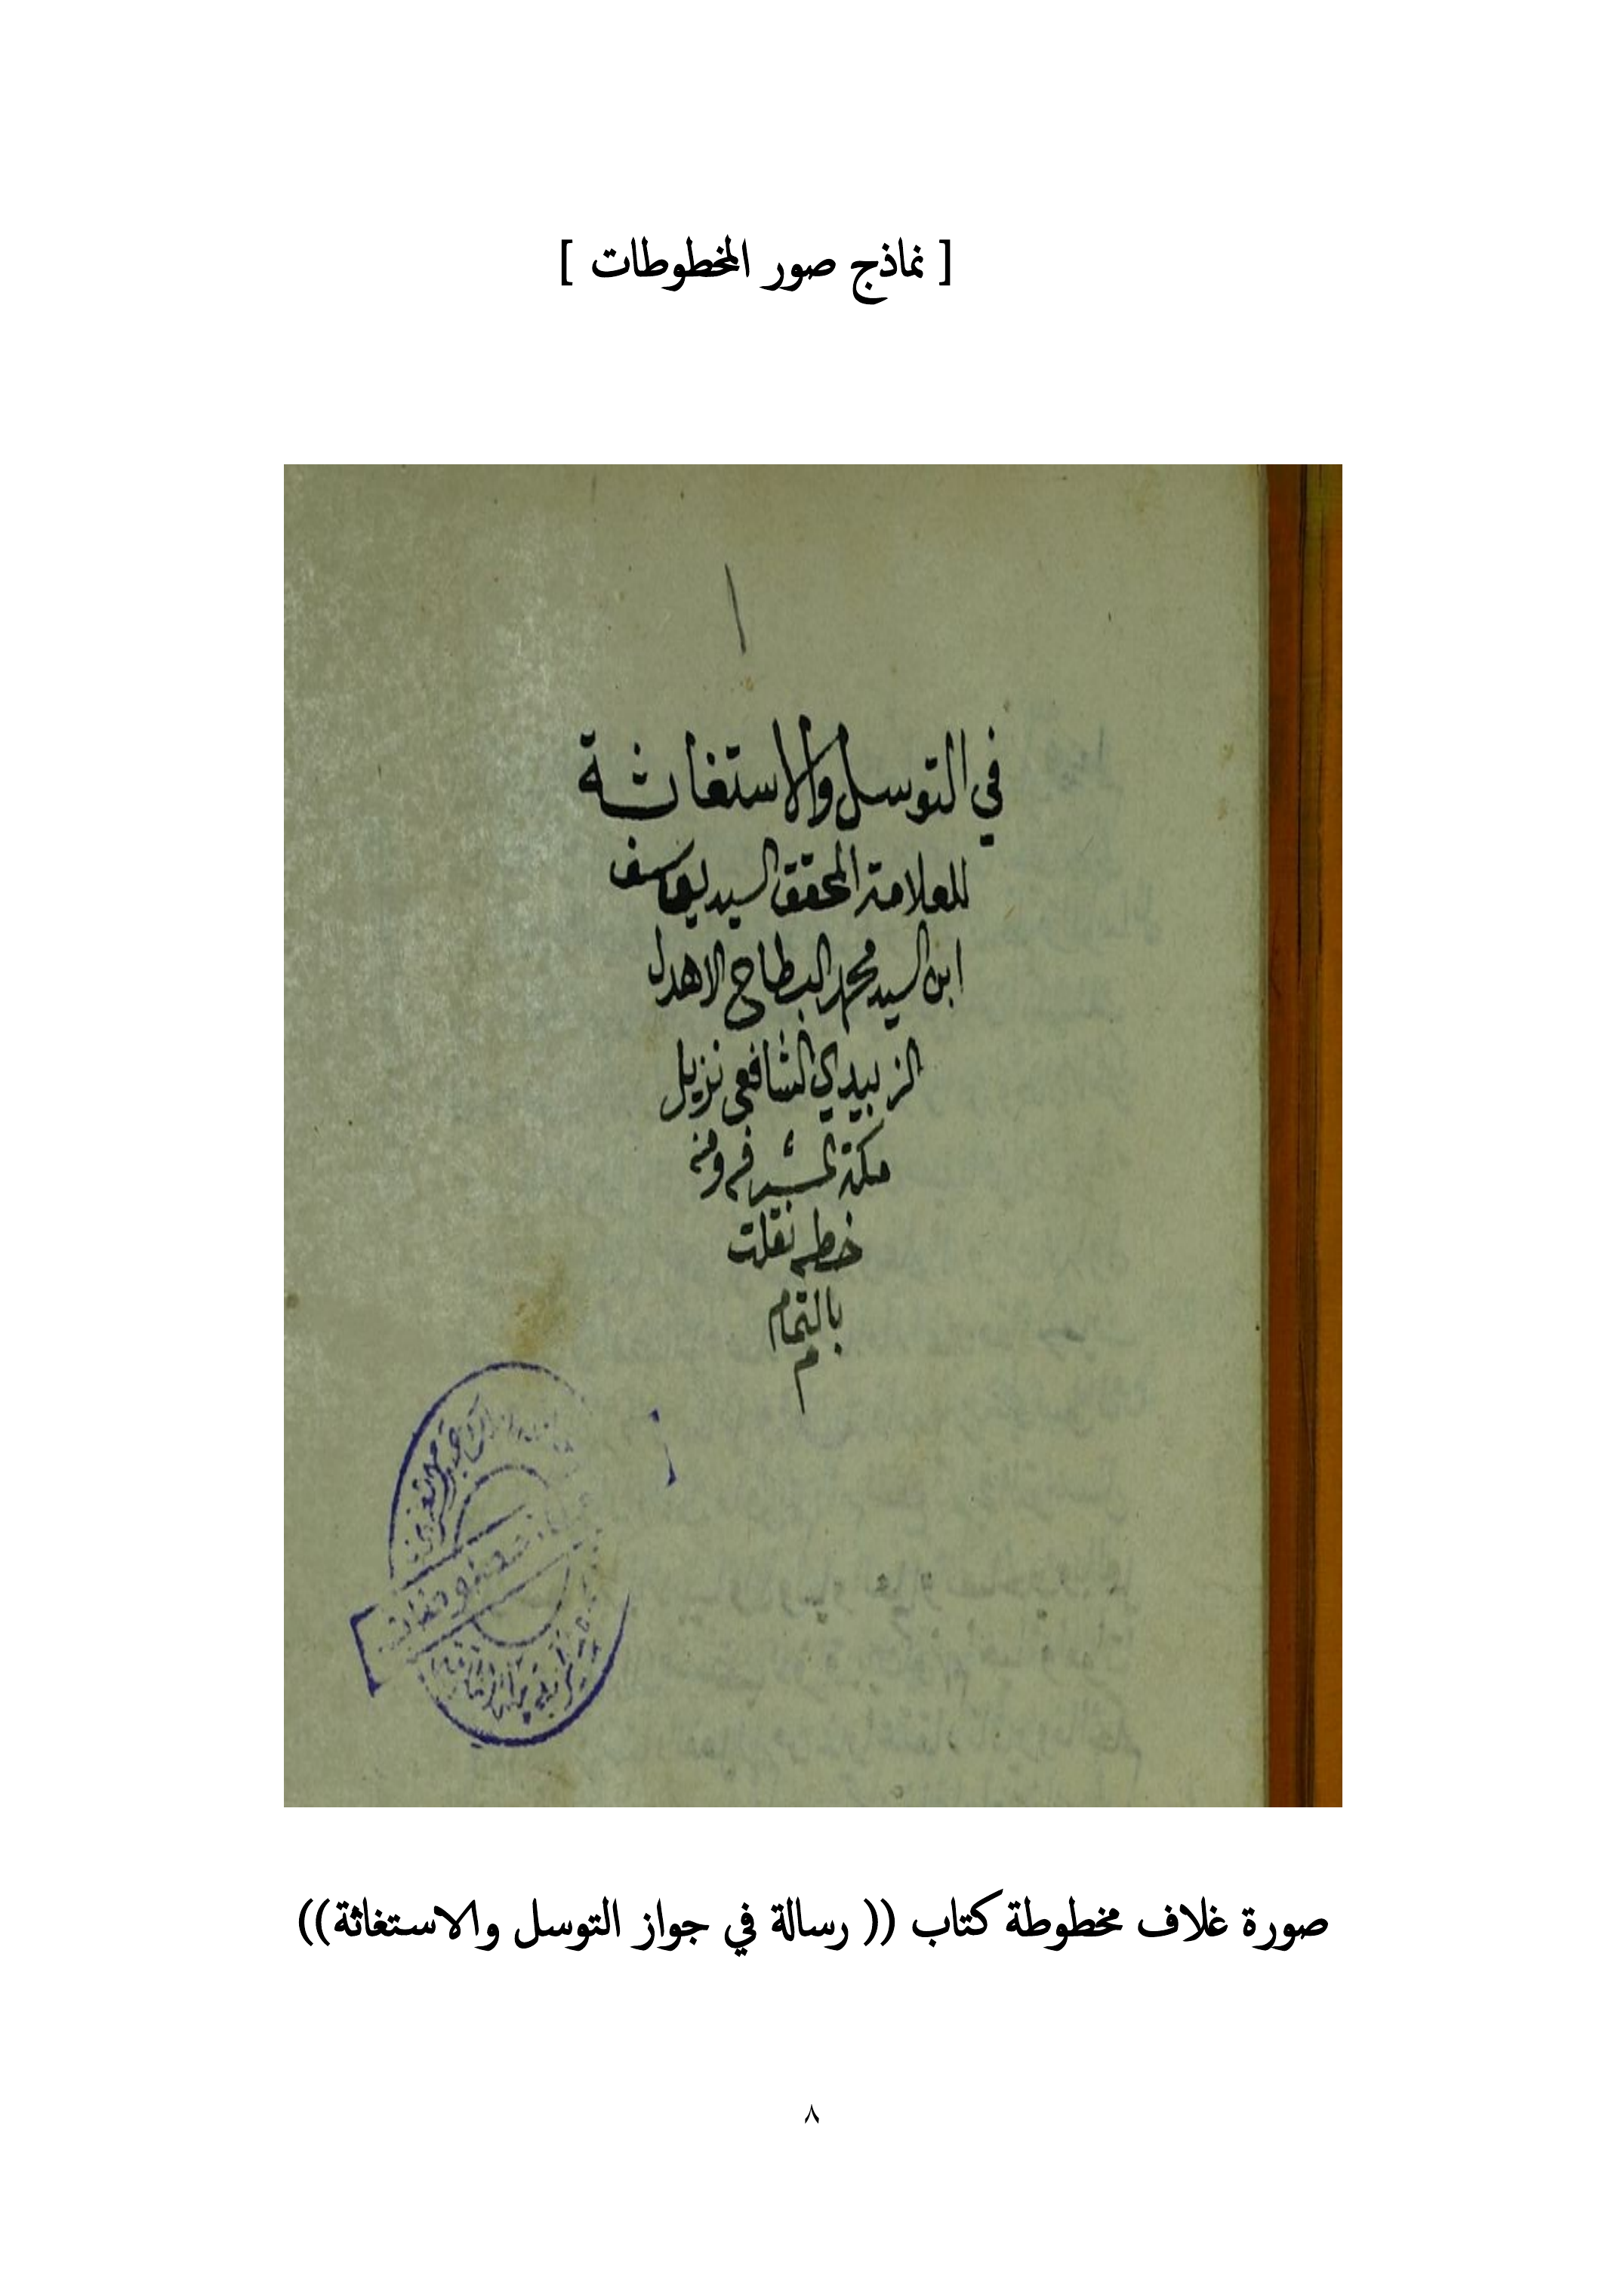 [ نماذج صور المخطوطات ]
في التوسل والاستغاثة
للعلامة المحقق السيد يوسف
ابن السيد محمد البطاح الاهدل
الزبيدي الشافعي نزيل
مكة المشرفه ومنه
خطه نقلت
بالتمام
م
صورة غلاف مخطوطة كتاب (( رسالة في جواز التوسل والاستغاثة))
٨